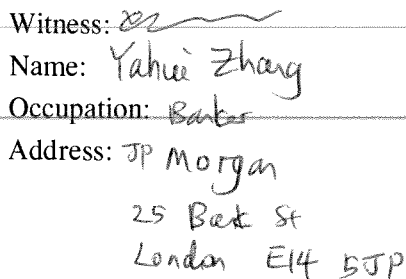 Witness:
Name: Yahui Zhang
Occupation: Banker
Address: JP Morgan
25 Bank St
London E14 5JP